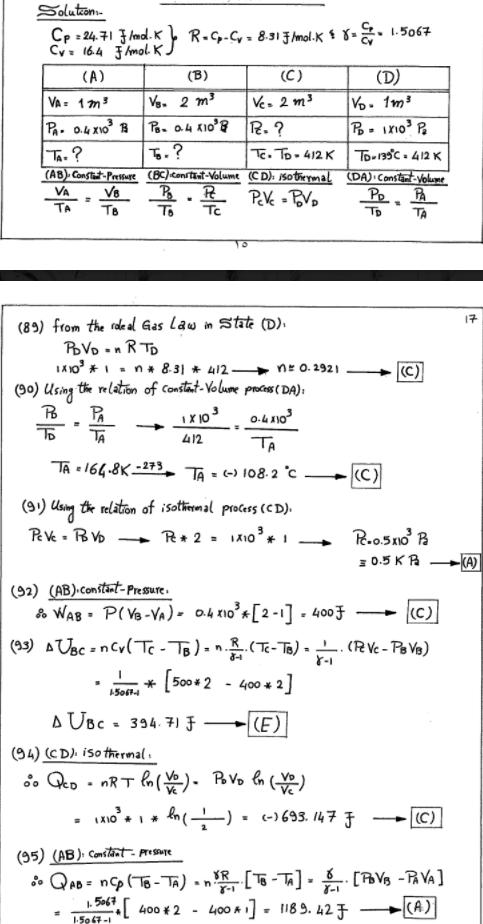 Solution:-
Cp = 24.71 J/mol.K
Cv = 16.4 J/mol.K } R = Cp - Cv = 8.31 J/mol.K & γ = Cp/Cv = 1.5067
(A) (B) (C) (D)
VA = 1 m³ VB = 2 m³ Vc = 2 m³ VD = 1 m³
PA = 0.4x10³ Pa PB = 0.4x10³ Pa Pc = ? PD = 1x10³ Pa
TA = ? TB = ? Tc = TD = 412 K TD = 139°C = 412 K
(AB): Constant-Pressure (BC): Constant-Volume (CD): isothermal (DA): Constant-Volume
VA/TA = VB/TB PB/TB = Pc/Tc PcVc = PDVD PD/TD = PA/TA
١٥
17
(89) from the ideal Gas Law in State (D):
PDVD = n R TD
1x10³ * 1 = n * 8.31 * 412 → n ≅ 0.2921 → (C)
(90) Using the relation of Constant-Volume process (DA):
PD/TD = PA/TA → 1x10³/412 = 0.4x10³/TA
TA = 164.8K -273→ TA = (-) 108.2 °C → (C)
(91) Using the relation of isothermal process (CD):
PcVc = PDVD → Pc * 2 = 1x10³ * 1 → Pc = 0.5x10³ Pa
≡ 0.5 K Pa → (A)
(92) (AB): Constant-Pressure:
∴ WAB = P(VB-VA) = 0.4x10³ * [2-1] = 400 J → (C)
(93) ΔUBC = nCv(Tc - TB) = n.R/γ-1.(Tc-TB) = 1/γ-1.(PcVc - PBVB)
= 1/1.5067-1 * [500*2 - 400*2]
ΔUBC = 394.71 J → (E)
(94) (CD): isothermal:
∴ QCD = nRT ln(VD/Vc) = PDVD ln(VD/Vc)
= 1x10³ * 1 * ln(1/2) = (-) 693.147 J → (C)
(95) (AB): Constant-pressure
∴ QAB = nCp(TB - TA) = n γR/γ-1.[TB - TA] = γ/γ-1.[PBVB - PAVA]
= 1.5067/1.5067-1 * [400*2 - 400*1] = 1189.42 J → (A)